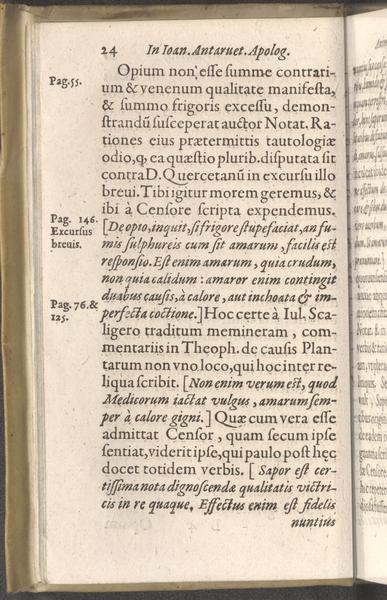 24 In Ioan. Antaruet. Apolog.
Opium non esse summe contrari-
Pag. 55.
um & venenum qualitate manifesta,
& summo frigoris excessu, demon-
strandū susceperat auctor Notat. Ra-
tiones eius prætermittis tautologiæ
odio, ꝙ ea quæstio plurib. disputata sit
contra D. Quercetanū in excursu illo
breui. Tibi igitur morem geremus, &
ibi à Censore scripta expendemus.
Pag. 146.
Excursus
breuis.
[De opio, inquit, si frigore stupefaciat, an fu-
mis sulphureis cum sit amarum, facilis est
responsio. Est enim amarum, quia crudum,
non quia calidum: amaror enim contingit
duabus causis, à calore, aut inchoata & im-
Pag. 76. &
125.
perfecta coctione.] Hoc certe à Iul. Sca-
ligero traditum memineram, com-
mentariis in Theoph. de causis Plan-
tarum non vno loco, qui hoc inter re-
liqua scribit. [Non enim verum est, quod
Medicorum iactat vulgus, amarum sem-
per à calore gigni.] Quæ cum vera esse
admittat Censor, quam secum ipse
sentiat, viderit ipse, qui paulo post hęc
docet totidem verbis. [Sapor est cer-
tissima nota dignoscendæ qualitatis victri-
cis in re quaque. Effectus enim est fidelis
nuntius